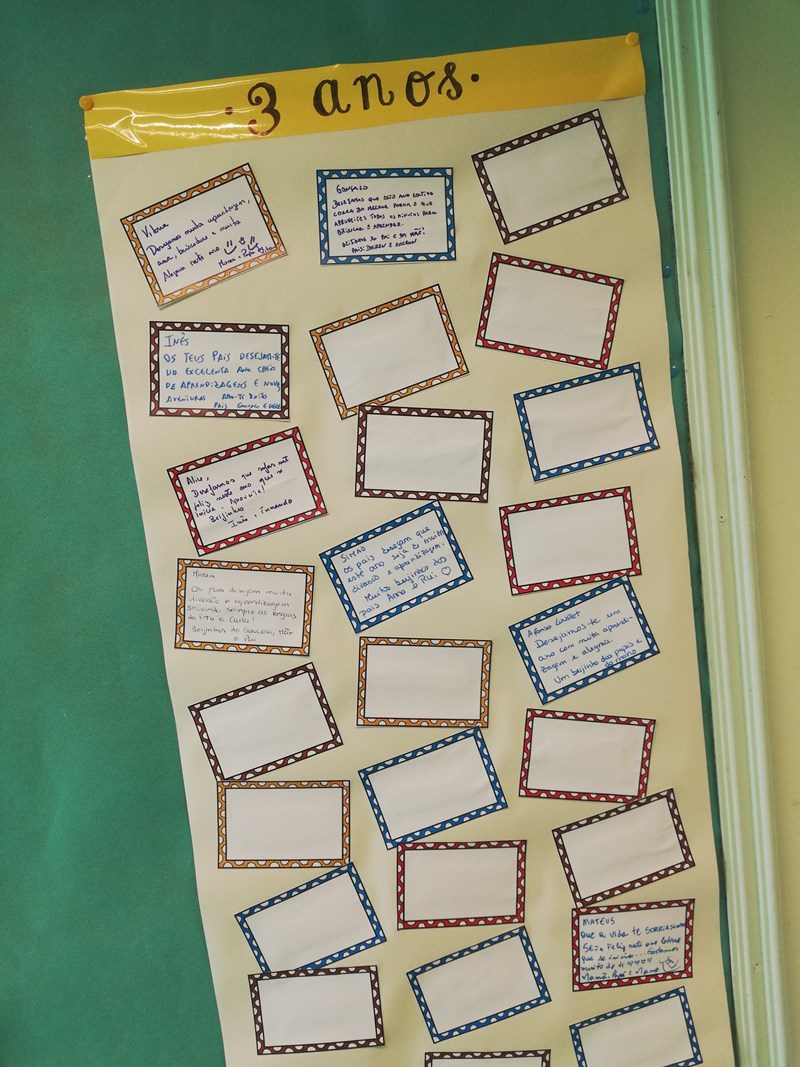 ·3 anos·
Vitória
Desejamos muita aprendizagem,
amor, brincadeiras e muita
Alegria neste ano
GONÇALO
DESEJAMOS QUE ESTE ANO LETIVO
CORRA DA MELHOR FORMA E QUE
APROVEITES TODOS OS MINUTOS PARA
BRINCAR E APRENDER.
BEIJINHOS DO PAI E DA MÃE!
INÊS
OS TEUS PAIS DESEJAM-TE
UM EXCELENTE ANO CHEIO
DE APRENDIZAGENS E NOVAS
AVENTURAS AMA-TE MUITO
PAIS
Alice,
Desejamos que sejas mt
feliz neste ano que se
inicia. Aproveita!
Beijinhos
Inês e Fernando
SIMÃO
os pais desejam que
este ano seja de muita
diversão e aprendizagem.
Muitos beijinhos dos
pais Anna e Rui ♡
Maria
Os pais desejam muita
diversão e aprendizagem
seguindo sempre as regras
da Tita e Carla!
Beijinhos do Gonçalo, Mãe
e Pai
Afonso
Desejamos-te um
ano com muita aprendi-
zagem e alegria.
Um beijinho dos papás e
do mano
MATEUS
Que a vida te SORRIA SEMPRE
SEJA Feliz neste ano letivo
que se inicia... Gostamos
muito de ti ♡♡♡♡
Mamã, Papá e Mano